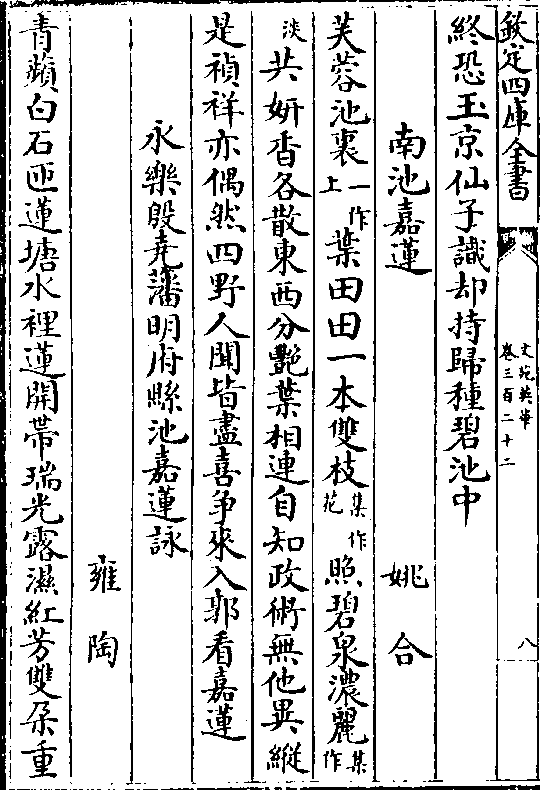 欽定四庫全書
文苑英華
卷三百二十二
八
終恐玉京仙子識却持歸種碧池中
南池嘉蓮 姚合
芙蓉池裏一作上葉田田一本雙枝集作花照碧泉濃麗集作
淡共妍香各散東西分艷葉相連自知政術無他異縱
是禎祥亦偶然四野人聞皆盡喜爭來入郭看嘉蓮
永樂殷堯藩明府縣池嘉蓮詠
雍陶
青蘋白石匝蓮塘水裡蓮開帶瑞光露濕紅芳雙朶重